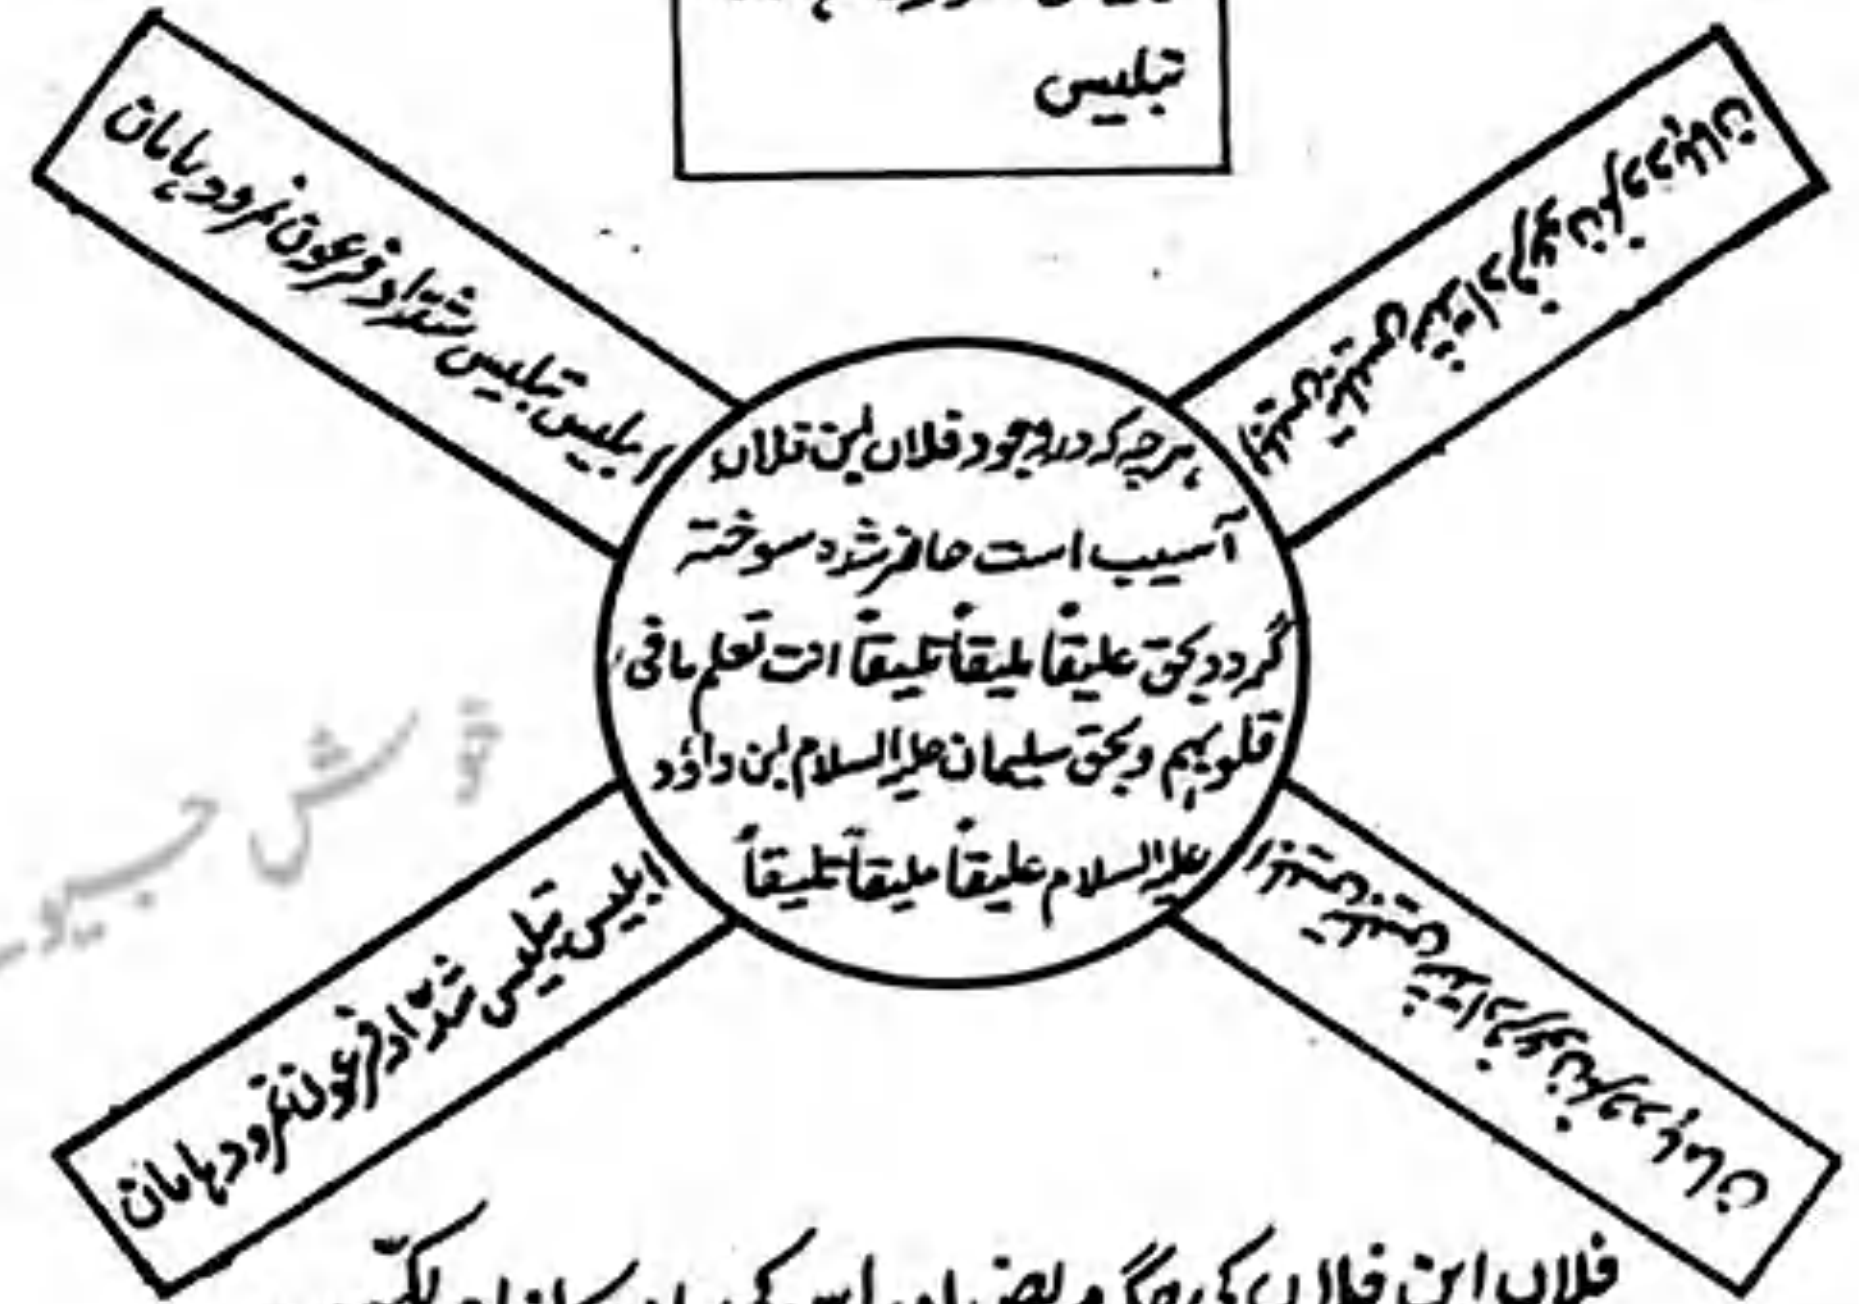 تبلیس
ابلیس تبلیس شدّاد فرعون نمرود ہامان
ابلیس تبلیس شدّاد فرعون نمرود ہامان
ہرچہ کہ در وجود فلاں بن فلاں
آسیب است حاضر شدہ سوختہ
گردد بحق علیقاً ملیقاً تلیقاً انت تعلم مافی
قلوبہم و بحق سلیمان علیہ السلام بن داؤد
علیہ السلام علیقاً ملیقاً تلیقاً
ابلیس تبلیس شدّاد فرعون نمرود ہامان
ابلیس تبلیس شدّاد فرعون نمرود ہامان
فلاں ابن فلاں کی جگہ مریض اور اس کی